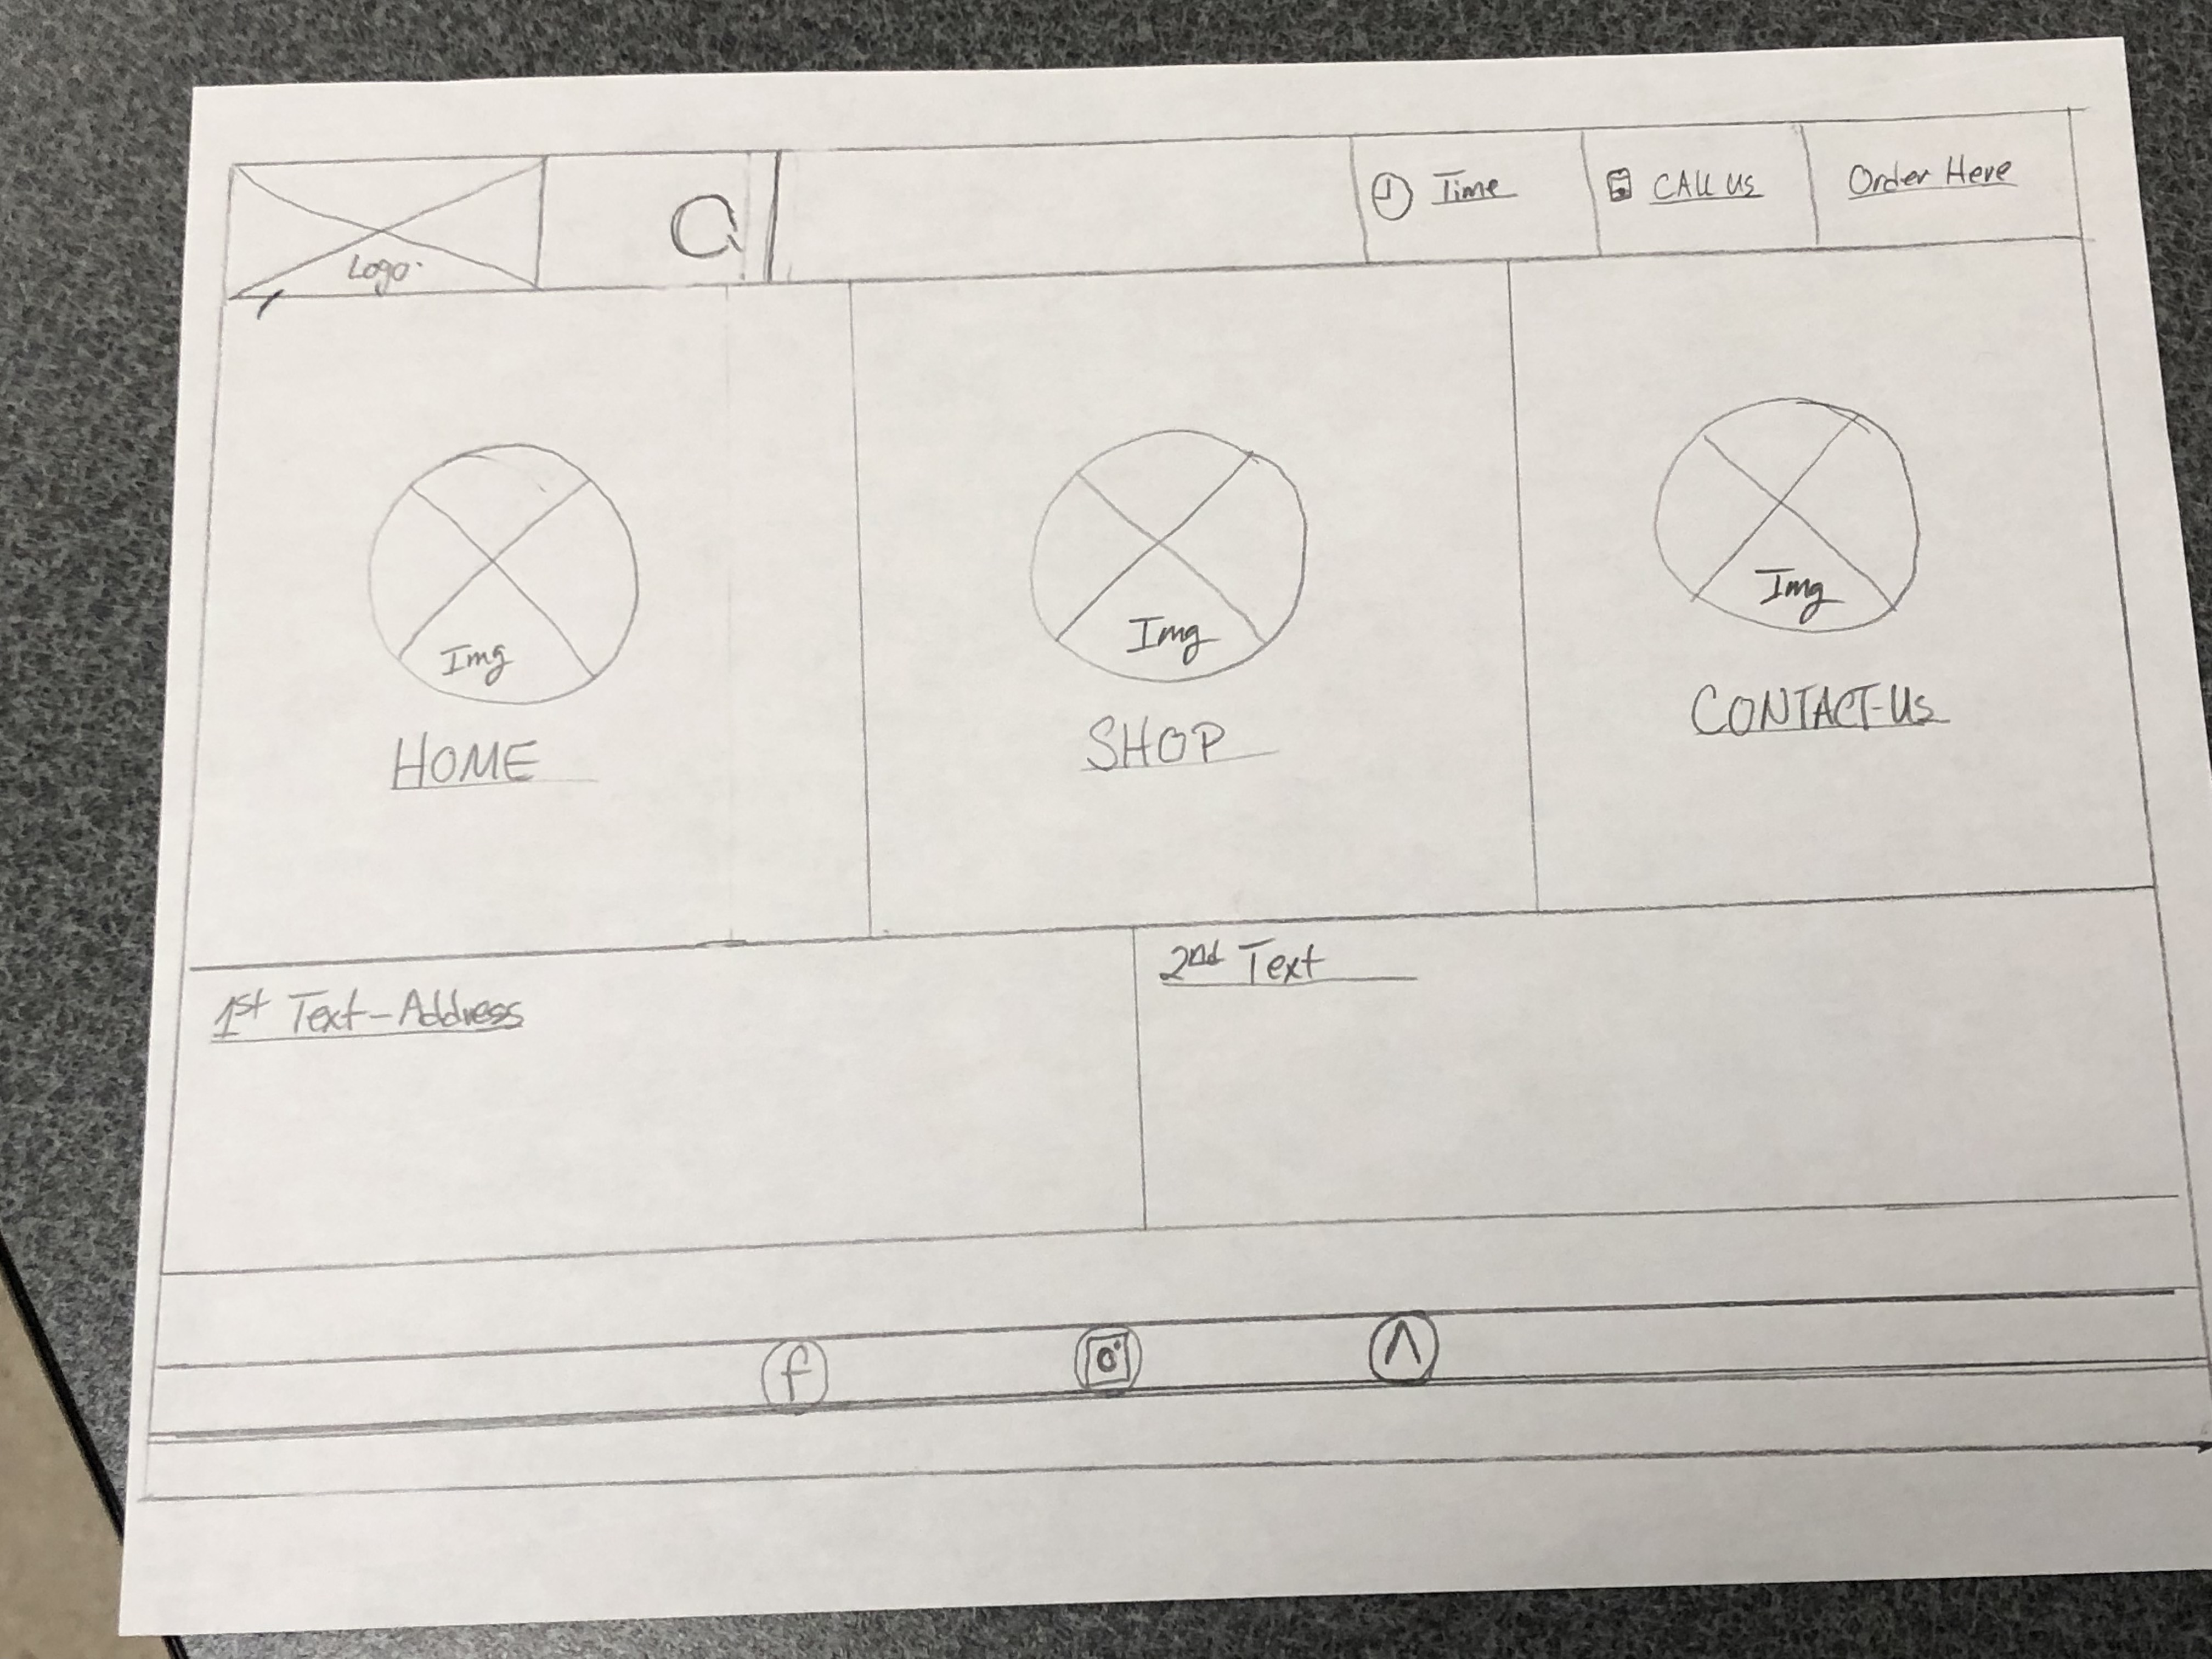 Logo
Time
CALL US
Order Here
Img
Img
Img
HOME
SHOP
CONTACT-Us
1st Text-Address
2nd Text
f
V